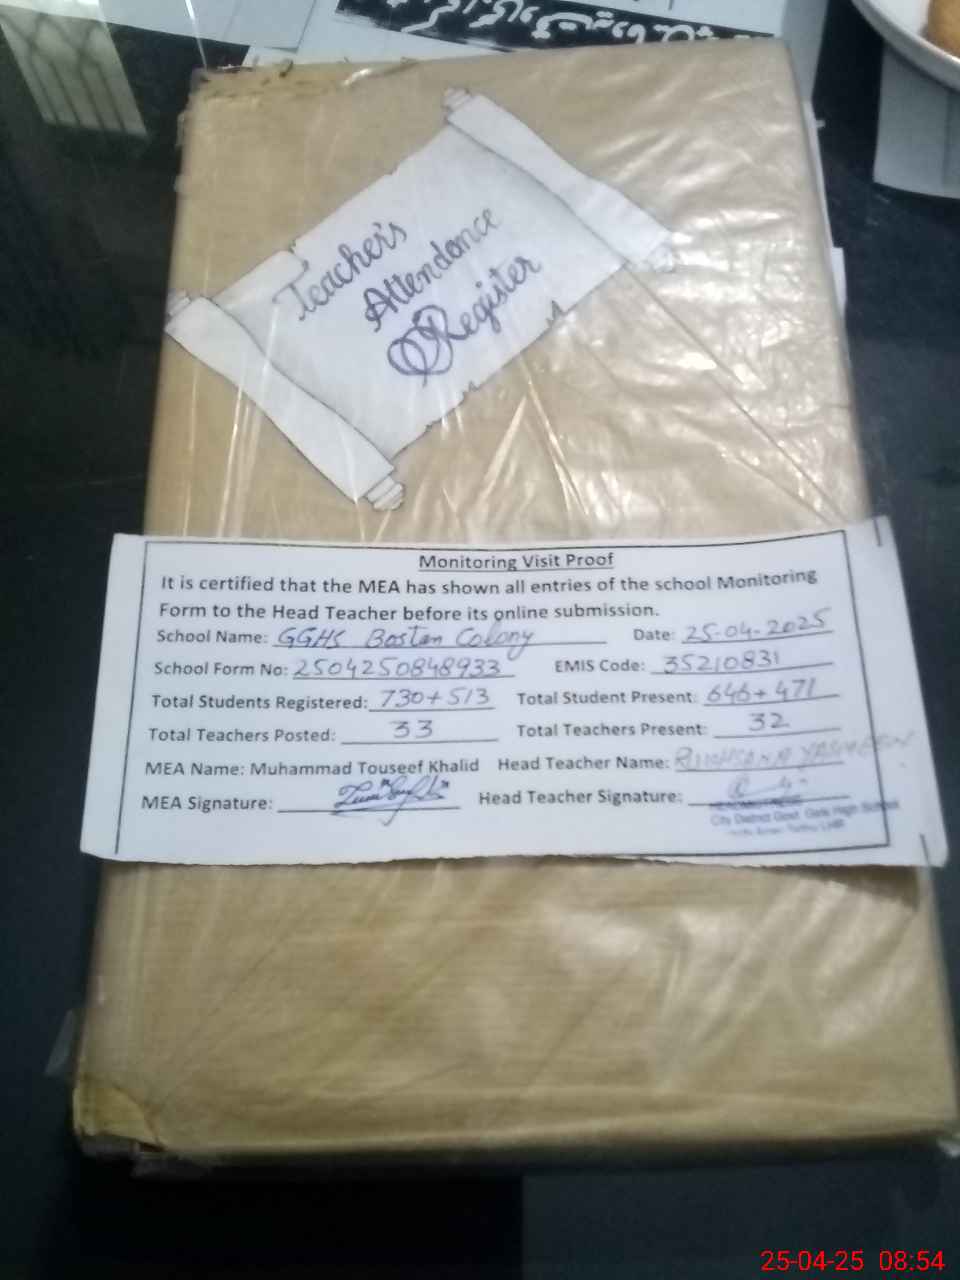 Teacher's
Attendance
Register
Monitoring Visit Proof
It is certified that the MEA has shown all entries of the school Monitoring
Form to the Head Teacher before its online submission.
School Name: GGHS Bostan Colony Date: 25-04-2025
School Form No: 2504250848933 EMIS Code: 35210831
Total Students Registered: 730+513 Total Student Present: 646+471
Total Teachers Posted: 33 Total Teachers Present: 32
MEA Name: Muhammad Touseef Khalid Head Teacher Name: RUKHSANA YASMEEN
MEA Signature: Head Teacher Signature:
HEADMISTRESS
City District Govt. Girls High School
25-04-25 08:54